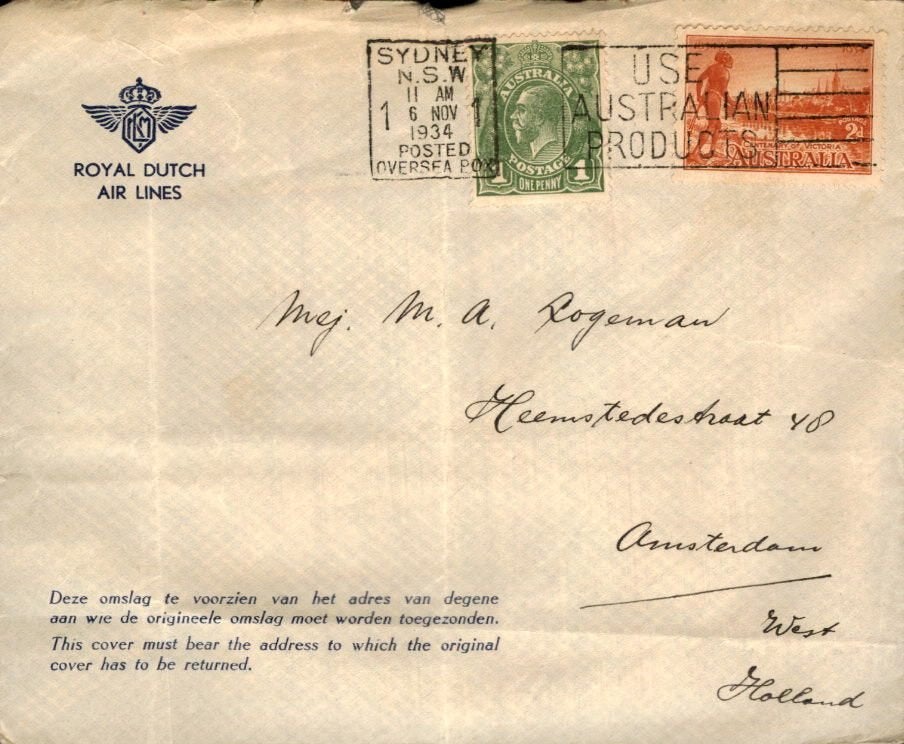 KLM
ROYAL DUTCH
AIR LINES
SYDNEY
N.S.W
11 AM
1 6 NOV 1
1934
POSTED
OVERSEA BOX
AUSTRALIA
POSTAGE
1 1
ONE PENNY
USE
AUSTRALIAN
PRODUCTS
2d
CENTENARY OF VICTORIA
AUSTRALIA
Mej. M. A. Logeman
Heemstedestraat 48
Amsterdam
West
Holland
Deze omslag te voorzien van het adres van degene
aan wie de origineele omslag moet worden toegezonden.
This cover must bear the address to which the original
cover has to be returned.